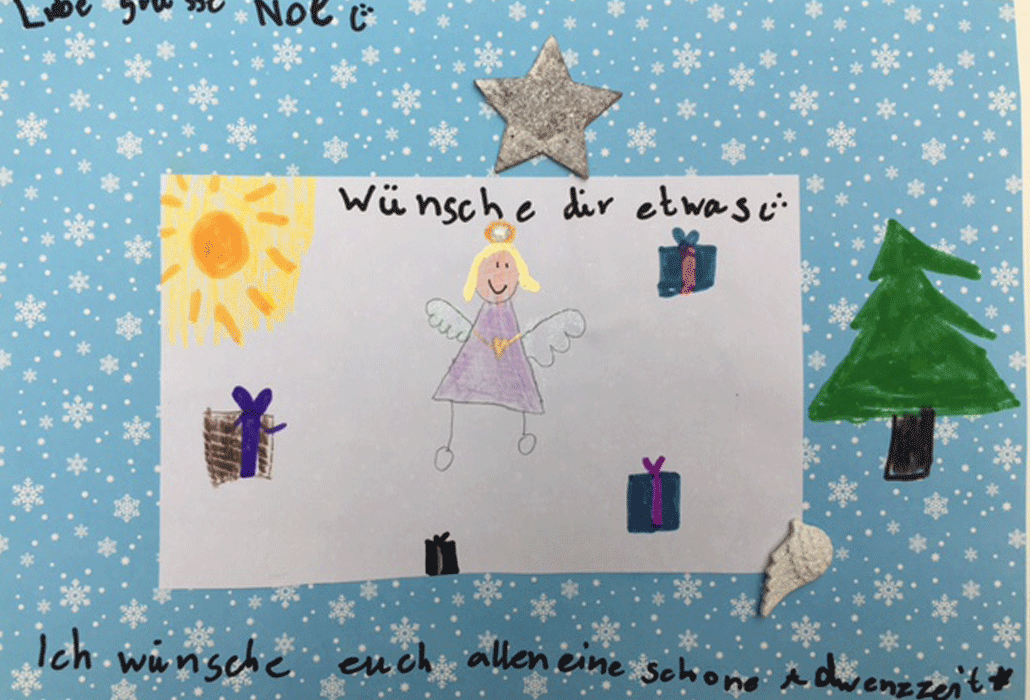 Liebe grüsse Noe
Wünsche dir etwas
Ich wünsche euch allen eine schone Adwenzzeit*